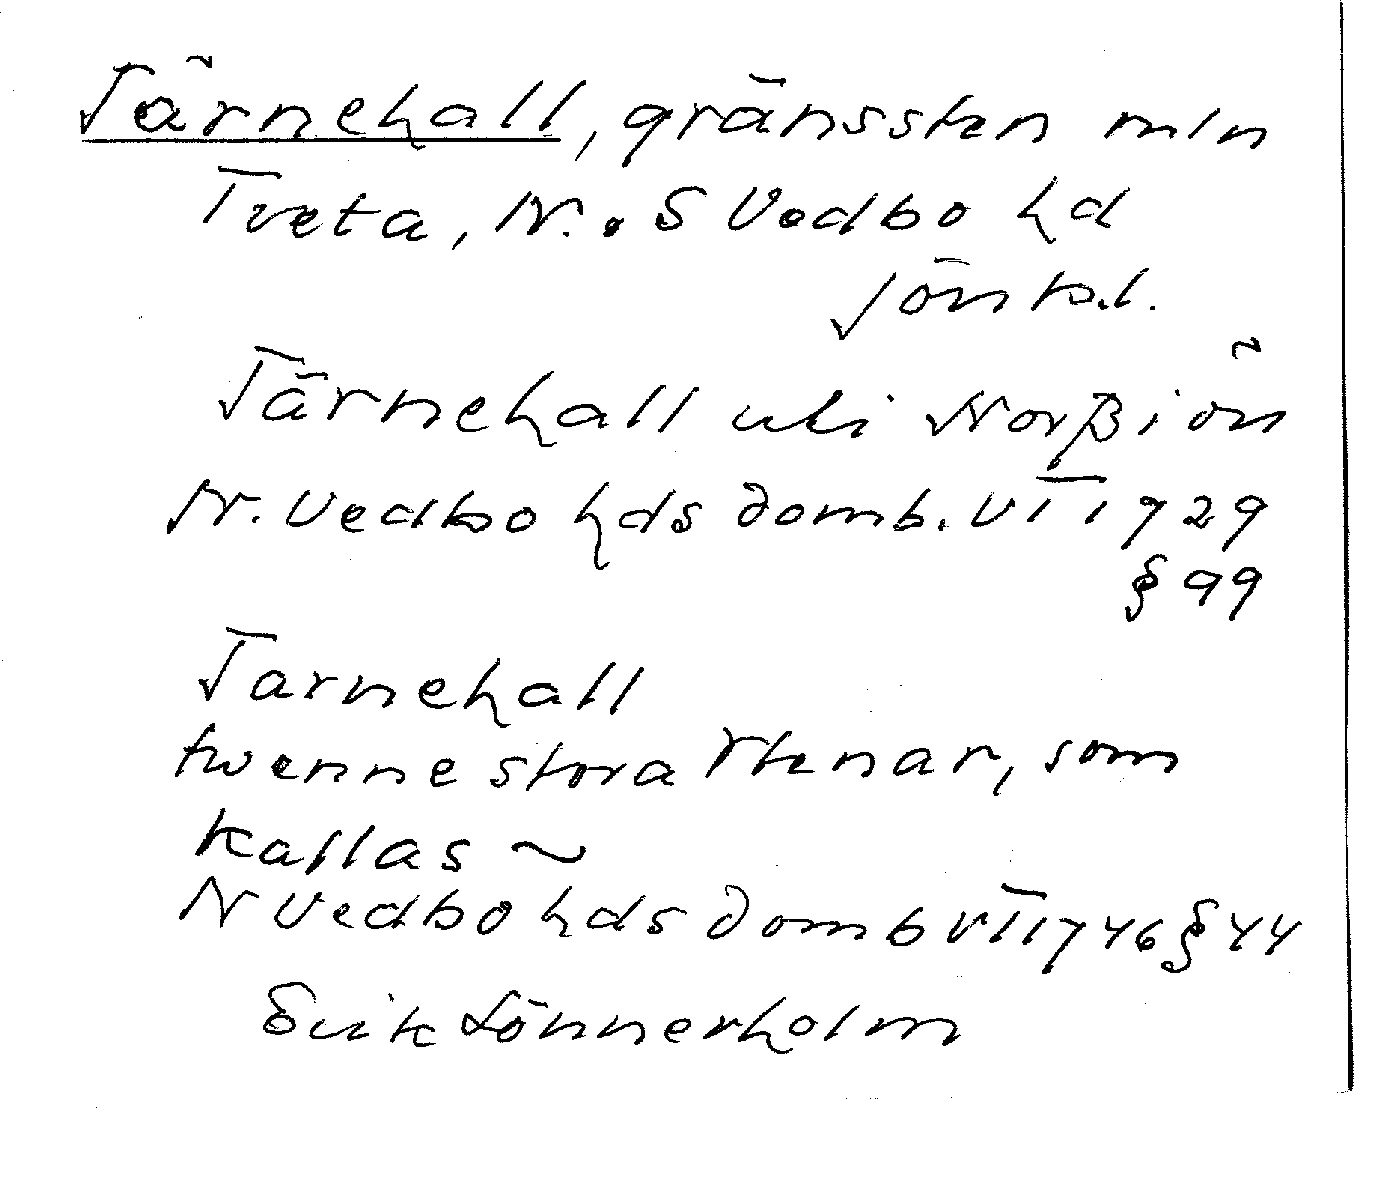 Tärnehall, gränssten mln
Tveta, N. o S Vedbo hd
Jönk.l.
Tärnehall uti Norßiön
N. Vedbo hds domb. VT 1729
§ 99
Tarnehall
twenne stora stenar, som
kallas ~
N Vedbo hds domb VT 1746 § 44
Erik Lönnerholm